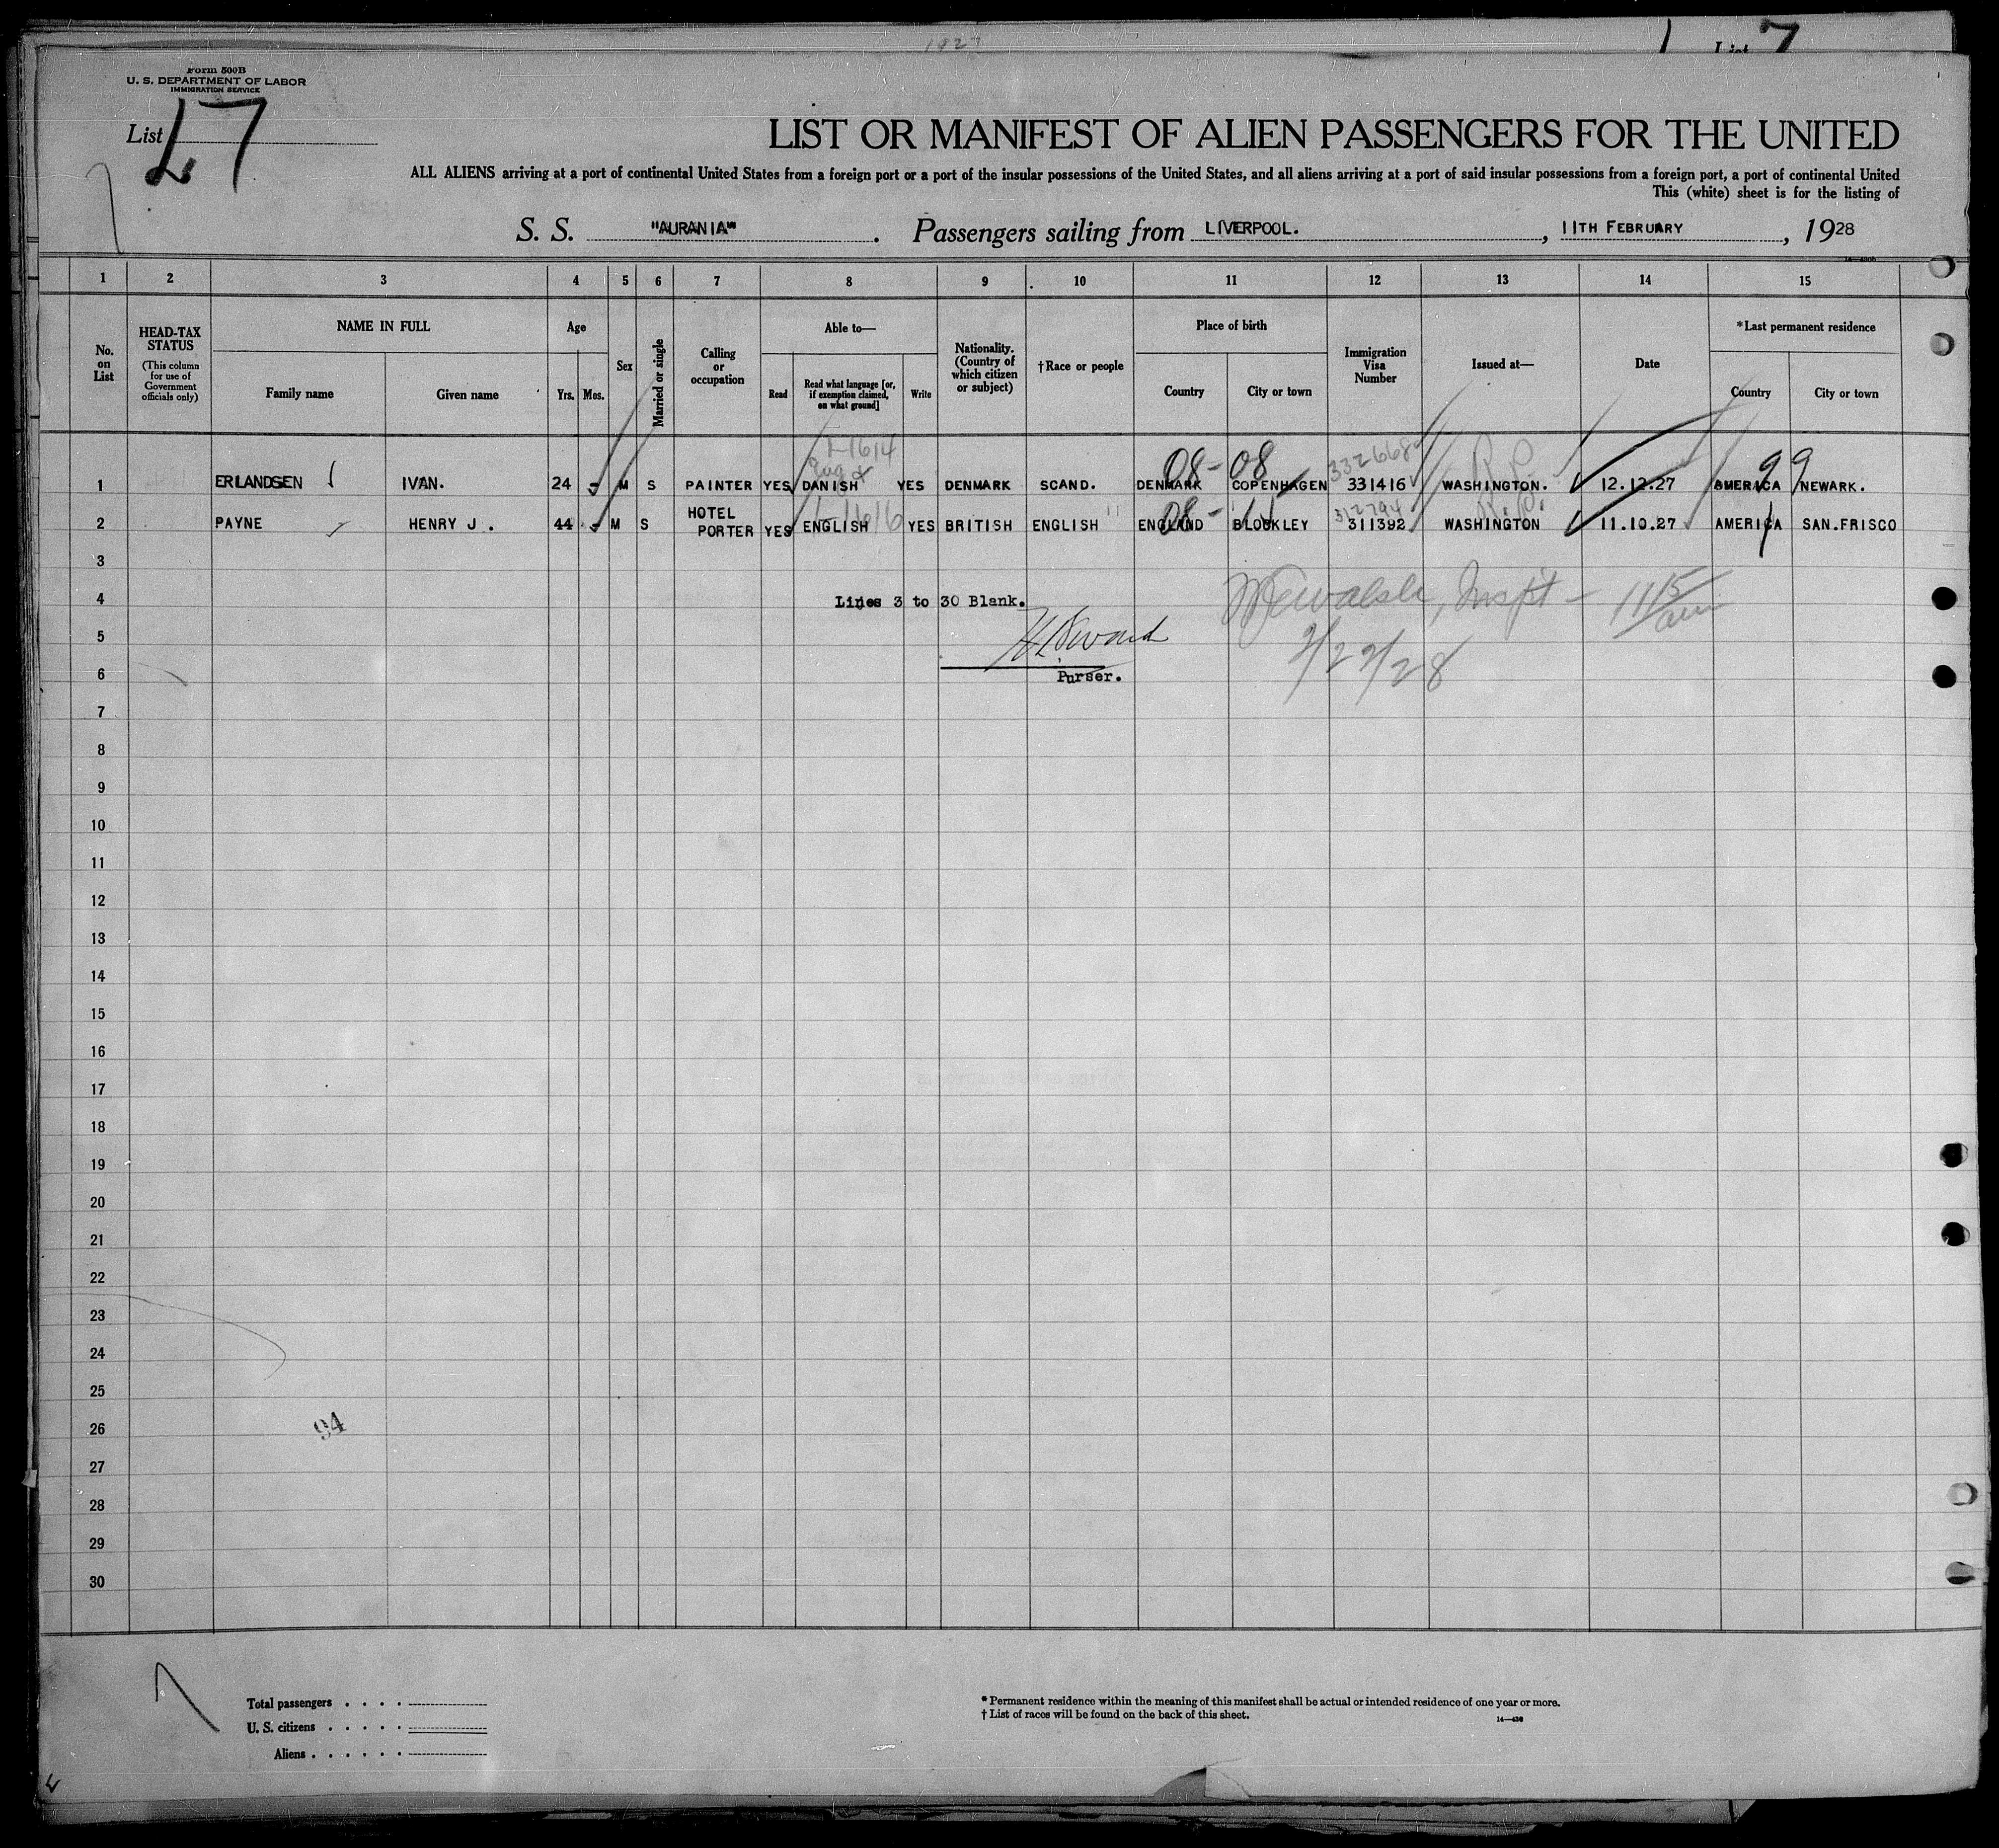 1927
List 7
Form 500B
U. S. DEPARTMENT OF LABOR
IMMIGRATION SERVICE
List 7
LIST OR MANIFEST OF ALIEN PASSENGERS FOR THE UNITED
ALL ALIENS arriving at a port of continental United States from a foreign port or a port of the insular possessions of the United States, and all aliens arriving at a port of said insular possessions from a foreign port, a port of continental United
This (white) sheet is for the listing of
S. S. "AURANIA". Passengers sailing from LIVERPOOL., 11TH FEBRUARY, 1928
1 2 3 4 5 6 7 8 9 10 11 12 13 14 15
No. on List
HEAD-TAX STATUS
(This column for use of Government officials only)
NAME IN FULL
Family name
Given name
Age
Yrs. Mos.
Sex
Married or single
Calling or occupation
Able to—
Read
Read what language [or, if exemption claimed, on what ground]
Write
Nationality. (Country of which citizen or subject)
†Race or people
Place of birth
Country
City or town
Immigration Visa Number
Issued at—
Date
*Last permanent residence
Country
City or town
L-1614
08-08
332668
R.P.
99
1 ERLANDSEN IVAN. 24 - M S PAINTER YES DANISH YES DENMARK SCAND. DENMARK COPENHAGEN 331416 WASHINGTON. 12.12.27 AMERICA NEWARK.
L-1616
08-
312794
R.P.
2 PAYNE HENRY J. 44 - M S HOTEL PORTER YES ENGLISH YES BRITISH ENGLISH ENGLAND BLOCKLEY 311392 WASHINGTON 11.10.27 AMERICA SAN.FRISCO
3
4 Lines 3 to 30 Blank. Inspt - 11 15/am
5
2/22/28
6 Purser.
7
8
9
10
11
12
13
14
15
16
17
18
19
20
21
22
23
24
25
26
94
27
28
29
30
Total passengers . . . .
U. S. citizens . . . . .
Aliens . . . . . .
* Permanent residence within the meaning of this manifest shall be actual or intended residence of one year or more.
† List of races will be found on the back of this sheet.
14—430